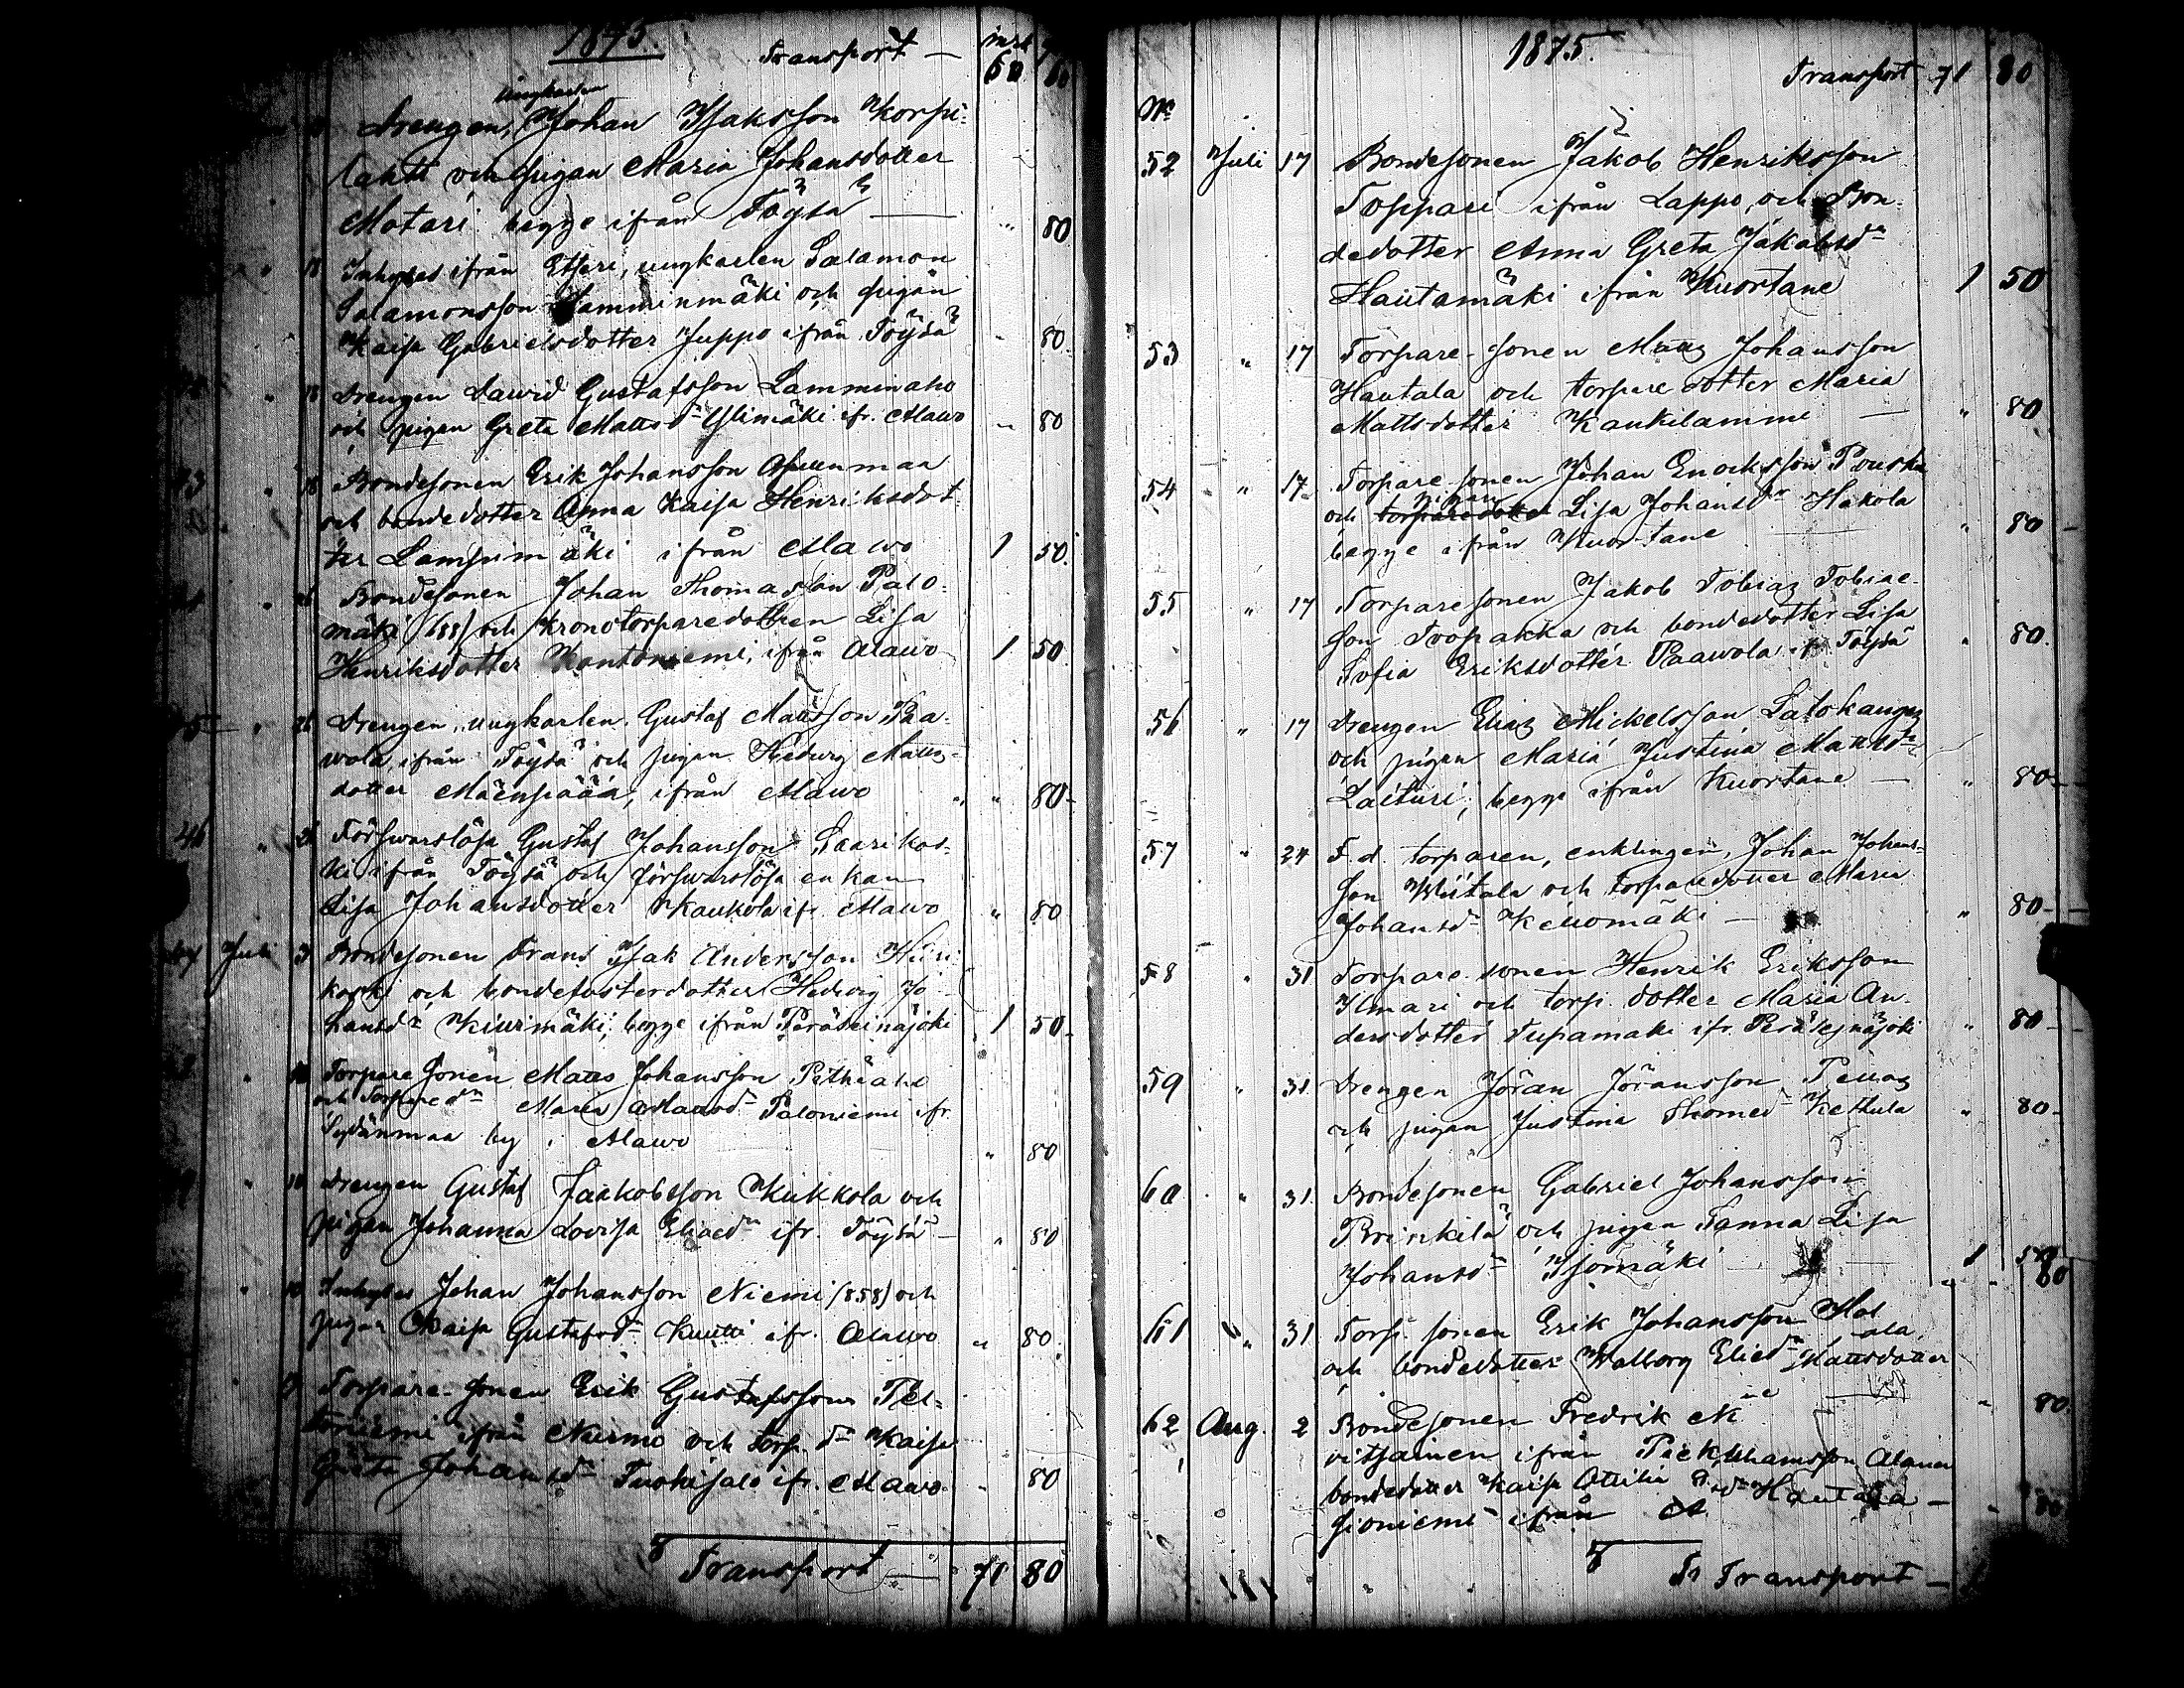 1875.
Transport — 60 60
ungkarlen
Drengen, Johan Isaksson Korpi-
lahti och pigan Maria Johansdotter
Matari begge ifrån Töysä — " 80
" 18 Inhyses ifrån Etseri, ungkarlen Salamon
Salamonsson Lamminmäki och pigan
Kaisa Gabrielsdotter Juppo ifrån Töysä " 80
" 18 Drengen Dawid Gustafsson Lamminaho
och pigan Greta Mattsdr Ylimäki ifr. Alawo " 80
43 " 18 Bondesonen Erik Johansson Asunmaa
och bondedotter Anna Kaisa Henriksdot
ter Lampimäki ifrån Alawo 1 50.
" 26 Bondesonen Johan Thomasson Palo-
mäki (688) och Kronotorparedottren Lisa
Henriksdotter Kantoniemi, ifrån Alawo 1 50
45 " 26 Drengen, ungkarlen Gustaf Mattsson Paa-
wola, ifrån Töysä och pigan Hedwig Matts-
dotter Mäenpäää, ifrån Alawo " " 80-
46 " 26 Förswarslösa Gustaf Johansson Saarikos-
ki ifrån Töysä och förswarslösa enkan
Lisa Johansdotter Kaukola ifr. Alawo " 80
47 Juli 3 Bondesonen Frans Isak Andersson Hiiri
koski och bondefosterdotter Hedwig Jo-
hansdr Kiurimäki, begge ifrån Peräseinäjoki 1 50-
" 10 Torpare sonen Matts Johansson Pithäaho
och Torparedr Maria Mattsdr Paloniemi ifr.
Sydänmaa by i Alawo " 80
" 10 Drengen Gustaf Jaakobsson Kukkola och
pigan Johanna Lovisa Eliaedr ifr. Töysä — " 80
" 10 Inhyses Johan Johansson Niemi (858) och
pigan Kaisa Gustafsdr Kuutti ifr. Alawo " 80.
Torpare-sonen Erik Gustafsson Pel-
toniemi ifrån Nurmo och Torp. dr Kaisa
Greta Johansdr Tuohisalo ifr. Alawo " 80
Transport — 71 80
1875.
Transport 71 80
No
52 Juli 17 Bondesonen Jakob Henriksson
Toppari ifrån Lappo, och Bon-
dedotter Anna Greta Jakobsdr
Hautamäki ifrån Kuortane 1 50
53 " 17 Torpare-sonen Matts Johansson
Hautala och torpare dotter Maria
Mattsdotter Kaukilammi — " 80
54 " 17 Torpare sonen Johan Enocksson Pouska
pigan
och torparedotter Lisa Johansdr Hakola
begge ifrån Kuortane " 80
55 " 17 Torparesonen Jakob Tobias Tobiae-
son Twopakka och bondedotter Lisa
Sofia Eriksdotter Paawola ifr Töysä " 80.
56 " 17 Drengen Elias Mickelsson Latokangas
och pigan Maria Justina Mattsdr
Laituri, begge ifrån Kuortane — " 80-
57 " 24 F. d. torparen, enklingen, Johan Johans-
son Wiitala och torparedotter Maria
Johansdr Keuomäki — " 80-
58 " 31 Torpare sonen Henrik Eriksson
Ilmari och torp. dotter Maria An-
dersdotter Tupamäki ifr. Peräseinäjoki " 80-
59 " 31 Drengen Jöran Jöransson
och pigan Justina Thomedr Kethula " 80-
60 " 31. Bondesonen Gabriel Johansson
Prinkilä och pigan Sanna Lisa
Johansdr Isomäki — 1 50
80
61 " 31 Torp. sonen Erik Johansson Hol
och bondedotter Walborg Eliedr Mattsdotter
" 80
62 Aug. 2 Bondesonen Fredrik
ifrån
bondedotter Kaisa Ottilia Hautala —
ifrån " 80
Transport —